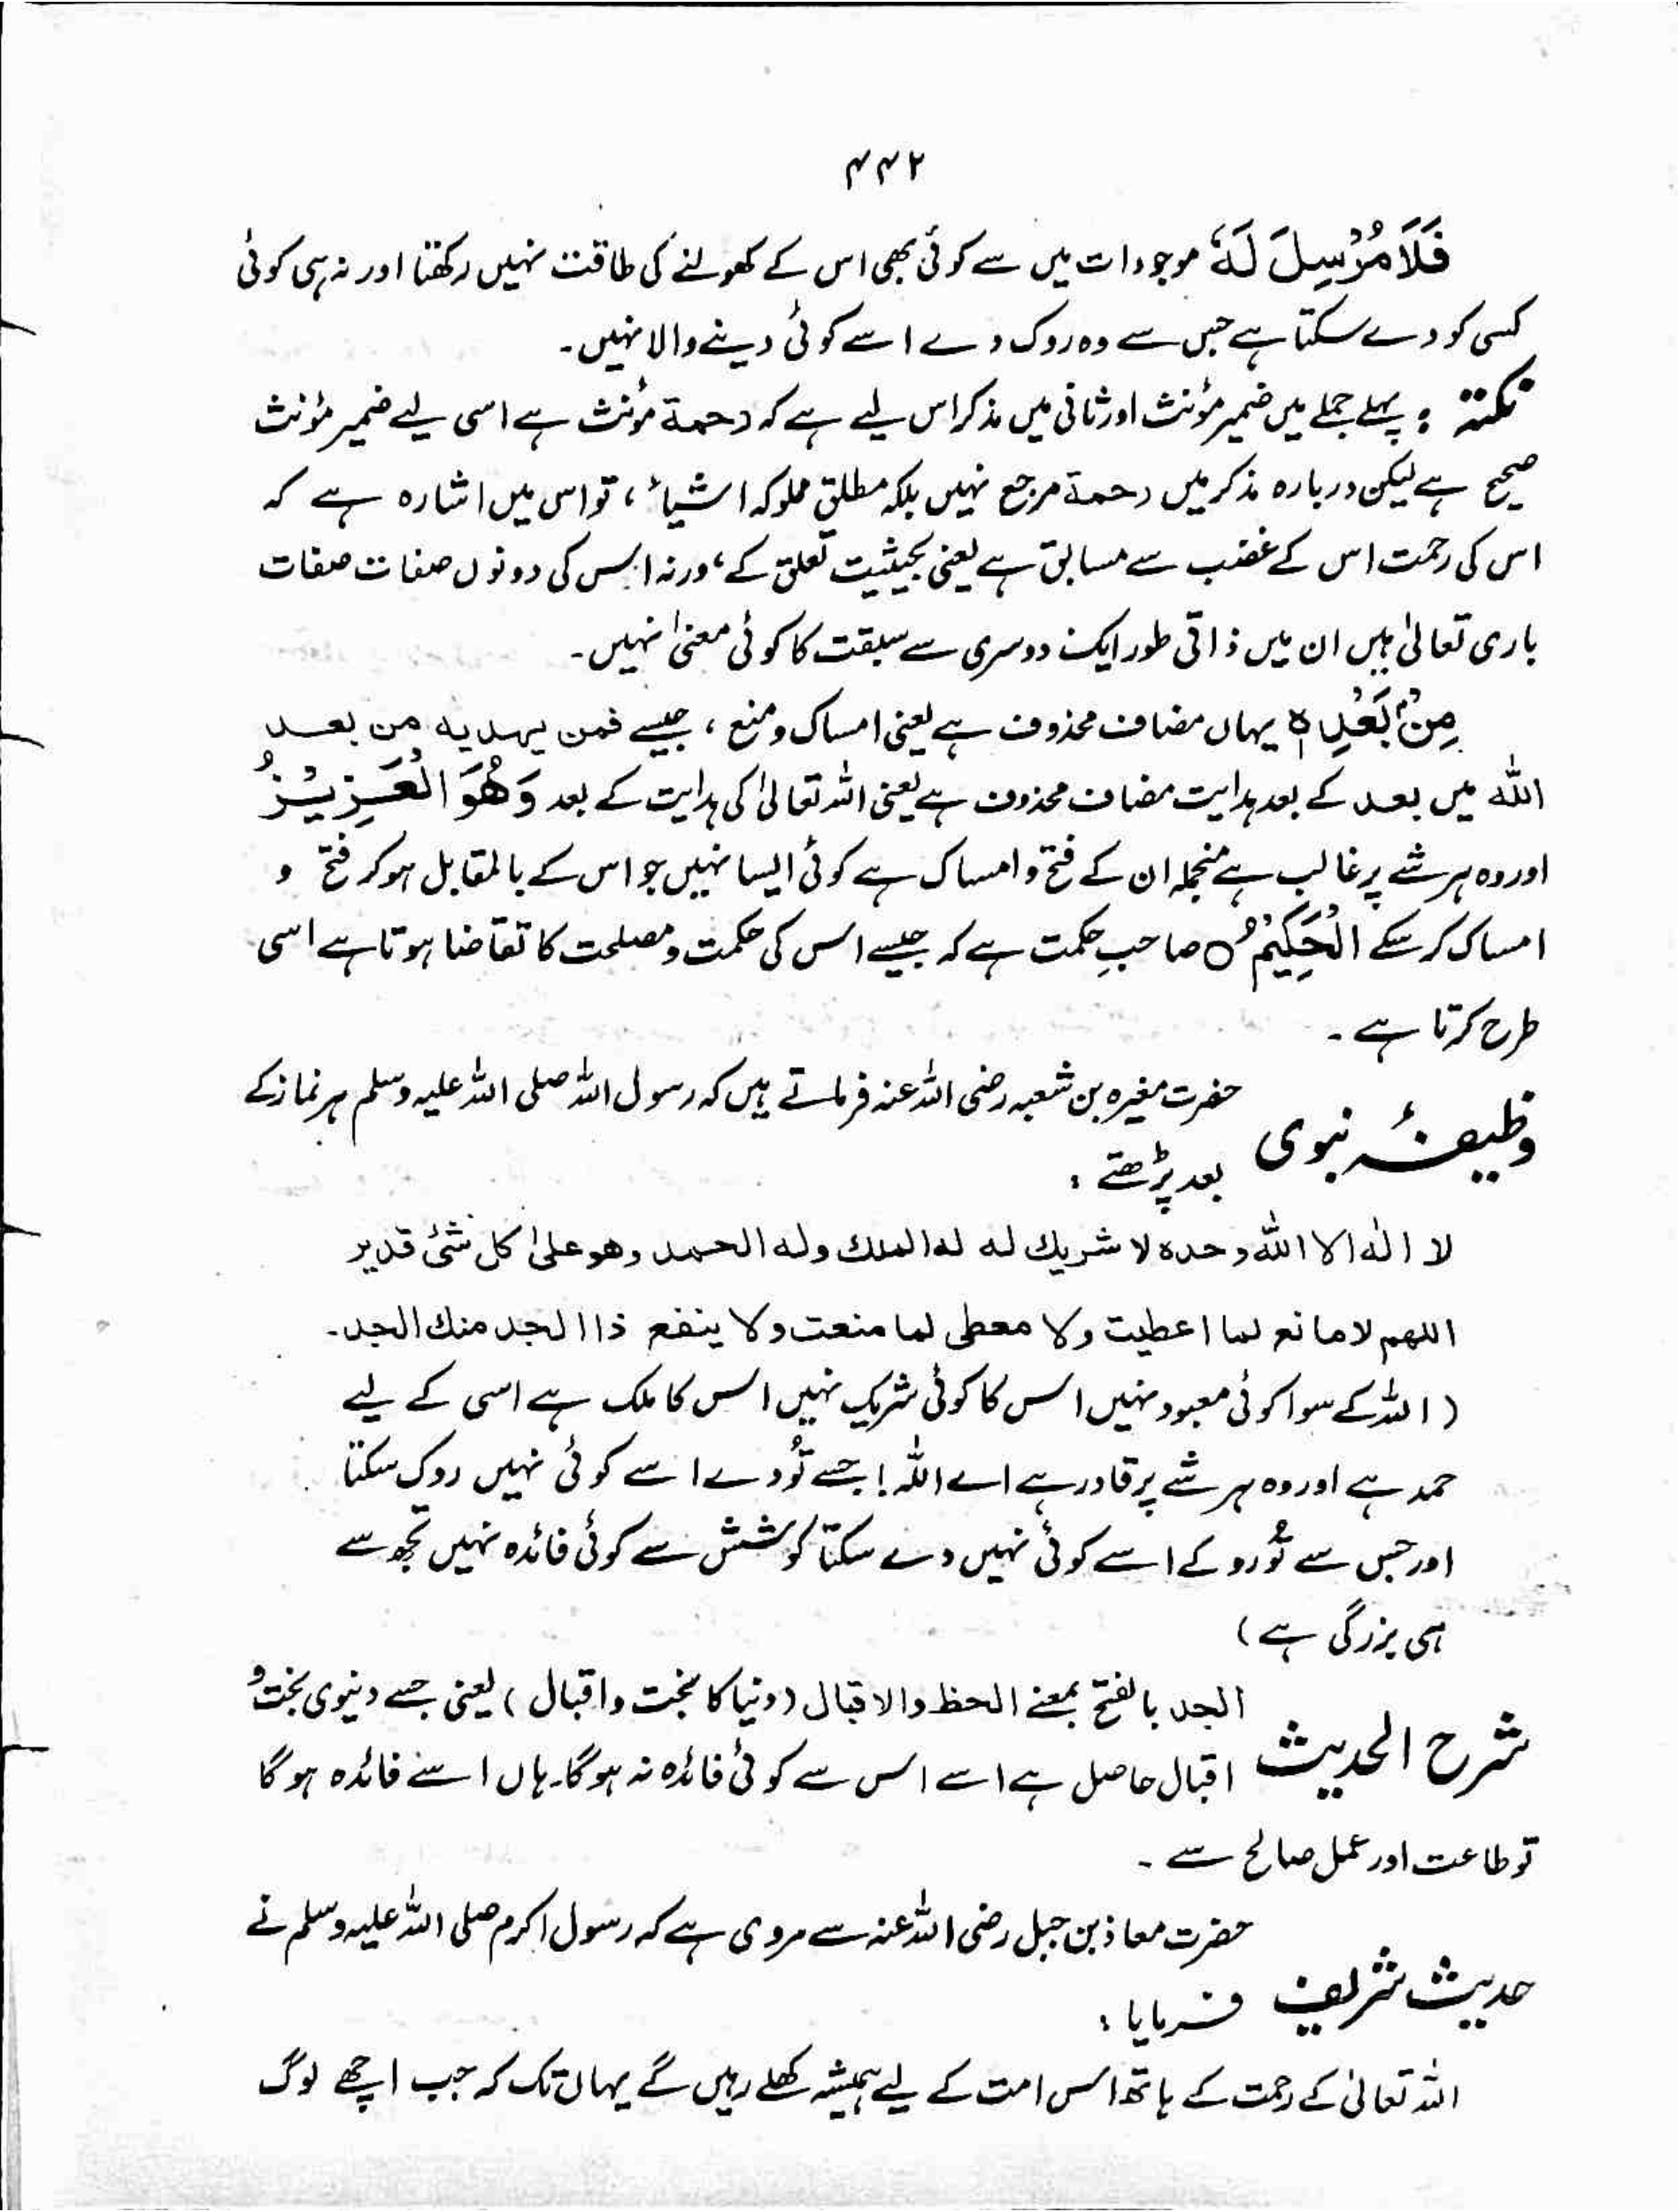 ۴۴۲
فَلَا مُرْسِلَ لَهٗ موجودات میں سے کوئی بھی اس کے کھولنے کی طاقت نہیں رکھتا اور نہ ہی کوئی
کسی کو دے سکتا ہے جس سے وہ روک دے اسے کوئی دینے والا نہیں۔
نکتہ : پہلے جملے میں ضمیر مؤنث اور ثانی میں مذکر اس لیے ہے کہ رحمة مؤنث ہے اسی لیے ضمیر مؤنث
صحیح ہے لیکن دربارہ مذکر میں رحمة مرجع نہیں بلکہ مطلق مملوکہ اشیاء ، تو اس میں اشارہ ہے کہ
اس کی رحمت اس کے غضب سے سابق ہے یعنی بحیثیت تعلق کے، ورنہ اس کی دونوں صفات صفات
باری تعالیٰ ہیں ان میں ذاتی طور ایک دوسری سے سبقت کا کوئی معنیٰ نہیں۔
مِنْۢ بَعْدِہٖ یہاں مضاف محذوف ہے یعنی امساک و منع ، جیسے فمن یہدیه من بعد
اللّٰه میں بعد کے بعد ہدایت مضاف محذوف ہے یعنی اللہ تعالیٰ کی ہدایت کے بعد وَهُوَ الْعَزِیْزُ
اور وہ ہر شے پر غالب ہے منجملہ ان کے فتح و امساک ہے کوئی ایسا نہیں جو اس کے بالمقابل ہوکر فتح و
امساک کر سکے الْحَكِیْمُ ○ صاحبِ حکمت ہے کہ جیسے اس کی حکمت و مصلحت کا تقاضا ہوتا ہے اسی
طرح کرتا ہے ۔
وظیفۂ نبوی حضرت مغیرہ بن شعبہ رضی اللہ عنہ فرماتے ہیں کہ رسول اللہ صلی اللہ علیہ وسلم ہر نماز کے
بعد پڑھتے :
لا اله الا الله وحده لا شريك له له الملك وله الحمد وهو علىٰ كل شئ قدير
اللهم لا مانع لما اعطيت ولا معطى لما منعت ولا ينفع ذا الجد منك الجد۔
( اللہ کے سوا کوئی معبود نہیں اس کا کوئی شریک نہیں اس کا ملک ہے اسی کے لیے
حمد ہے اور وہ ہر شے پر قادر ہے اے اللہ! جسے تُو دے اسے کوئی نہیں روک سکتا
اور جس سے تُو روکے اسے کوئی نہیں دے سکتا کوشش سے کوئی فائدہ نہیں تجھ سے
ہی بزرگی ہے )
شرح الحدیث الجد بالفتح بمعنے الحظ والاقبال ( دنیا کا بخت و اقبال ) یعنی جسے دنیوی بخت و
اقبال حاصل ہے اسے اس سے کوئی فائدہ نہ ہوگا۔ ہاں اسے فائدہ ہوگا
تو طاعت اور عمل صالح سے ۔
حدیث شریف حضرت معاذ بن جبل رضی اللہ عنہ سے مروی ہے کہ رسول اکرم صلی اللہ علیہ وسلم نے
فرمایا :
اللہ تعالیٰ کے رحمت کے ہاتھ اس امت کے لیے ہمیشہ کھلے رہیں گے یہاں تک کہ جب اچھے لوگ